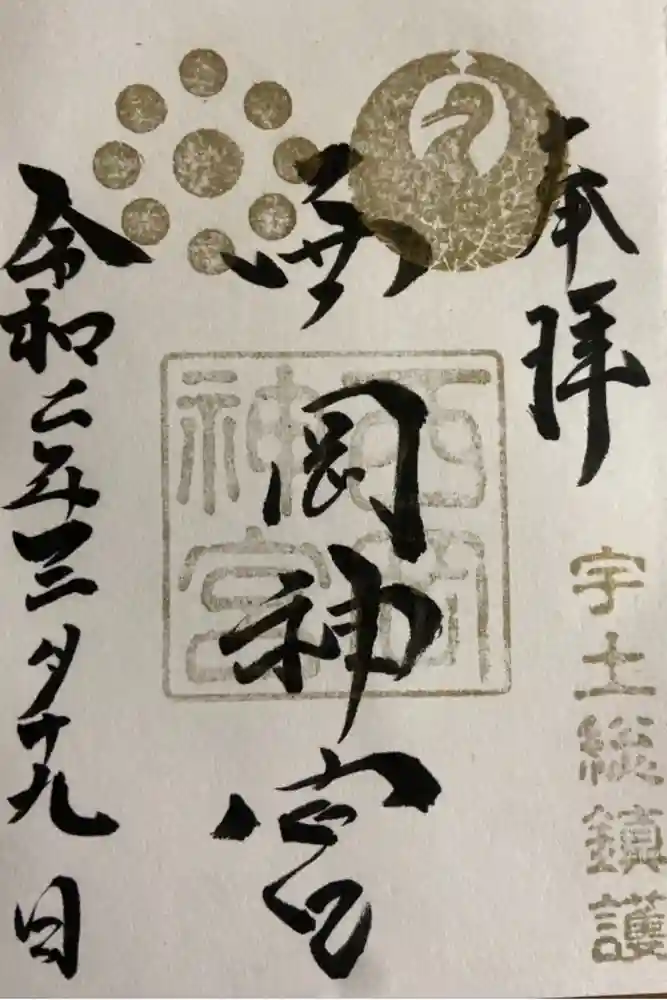 奉拝
宇土総鎮護
西岡神宮
西岡
神宮
令和二年三月十九日